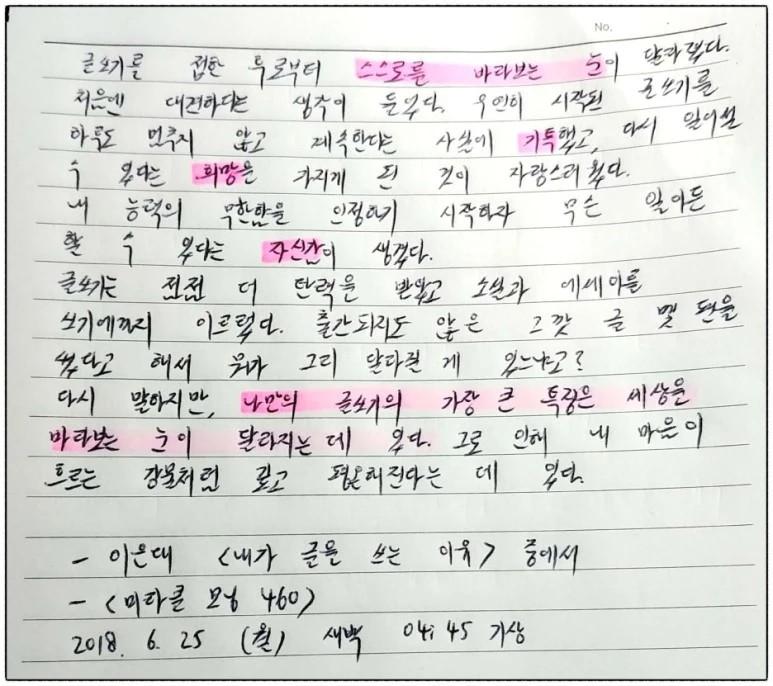 No.
글쓰기를 접한 후로부터 스스로를 바라보는 눈이 달라졌다.
처음엔 대견하다는 생각이 들었다. 우연히 시작된 글쓰기를
하루도 멈추지 않고 계속한다는 사실에 기특했고, 다시 일어설
수 있다는 희망을 가지게 된 것이 자랑스러웠다.
내 능력의 무한함을 인정하기 시작하자 무슨 일이든
할 수 있다는 자신감이 생겼다.
글쓰기는 점점 더 탄력을 받았고 소설과 에세이를
쓰기에까지 이르렀다. 출간되지도 않은 그깟 글 몇 편을
썼다고 해서 뭐가 그리 달라질 게 있느냐고?
다시 말하지만, 나만의 글쓰기의 가장 큰 특징은 세상을
바라보는 눈이 달라지는 데 있다. 그로 인해 내 마음이
흐르는 강물처럼 깊고 평온해진다는 데 있다.
- 이은대 <내가 글을 쓰는 이유> 중에서
- <미라클 모닝 460>
2018. 6. 25 (월) 새벽 04:45 기상